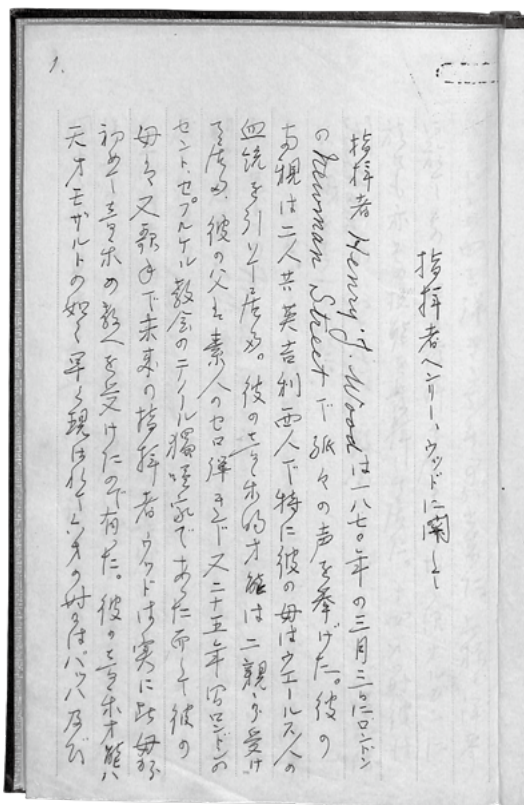 1.
指揮者ヘンリー、ウッドに関して
指揮者 Henry. J. Wood は一八七〇年の三月三日にロンドン
の Newman Street で呱々の声を挙げた。彼の
両親は二人共英吉利西人で特に彼の母はウエールス人の
血統を引いて居る。彼の音楽的才能は二親から受け
て居る、彼の父は素人のセロ弾きで又二十五年間ロンドンの
セント、セプルケル教会のテノール獨唱家であった而して彼の
母も又歌手で未来の指揮者ウッドは実に此母から
初めて音楽の教へを受けたので有った。彼の音楽才能ハ
天才モザルトの如く早く現はれて六才の時にはバッハ及び